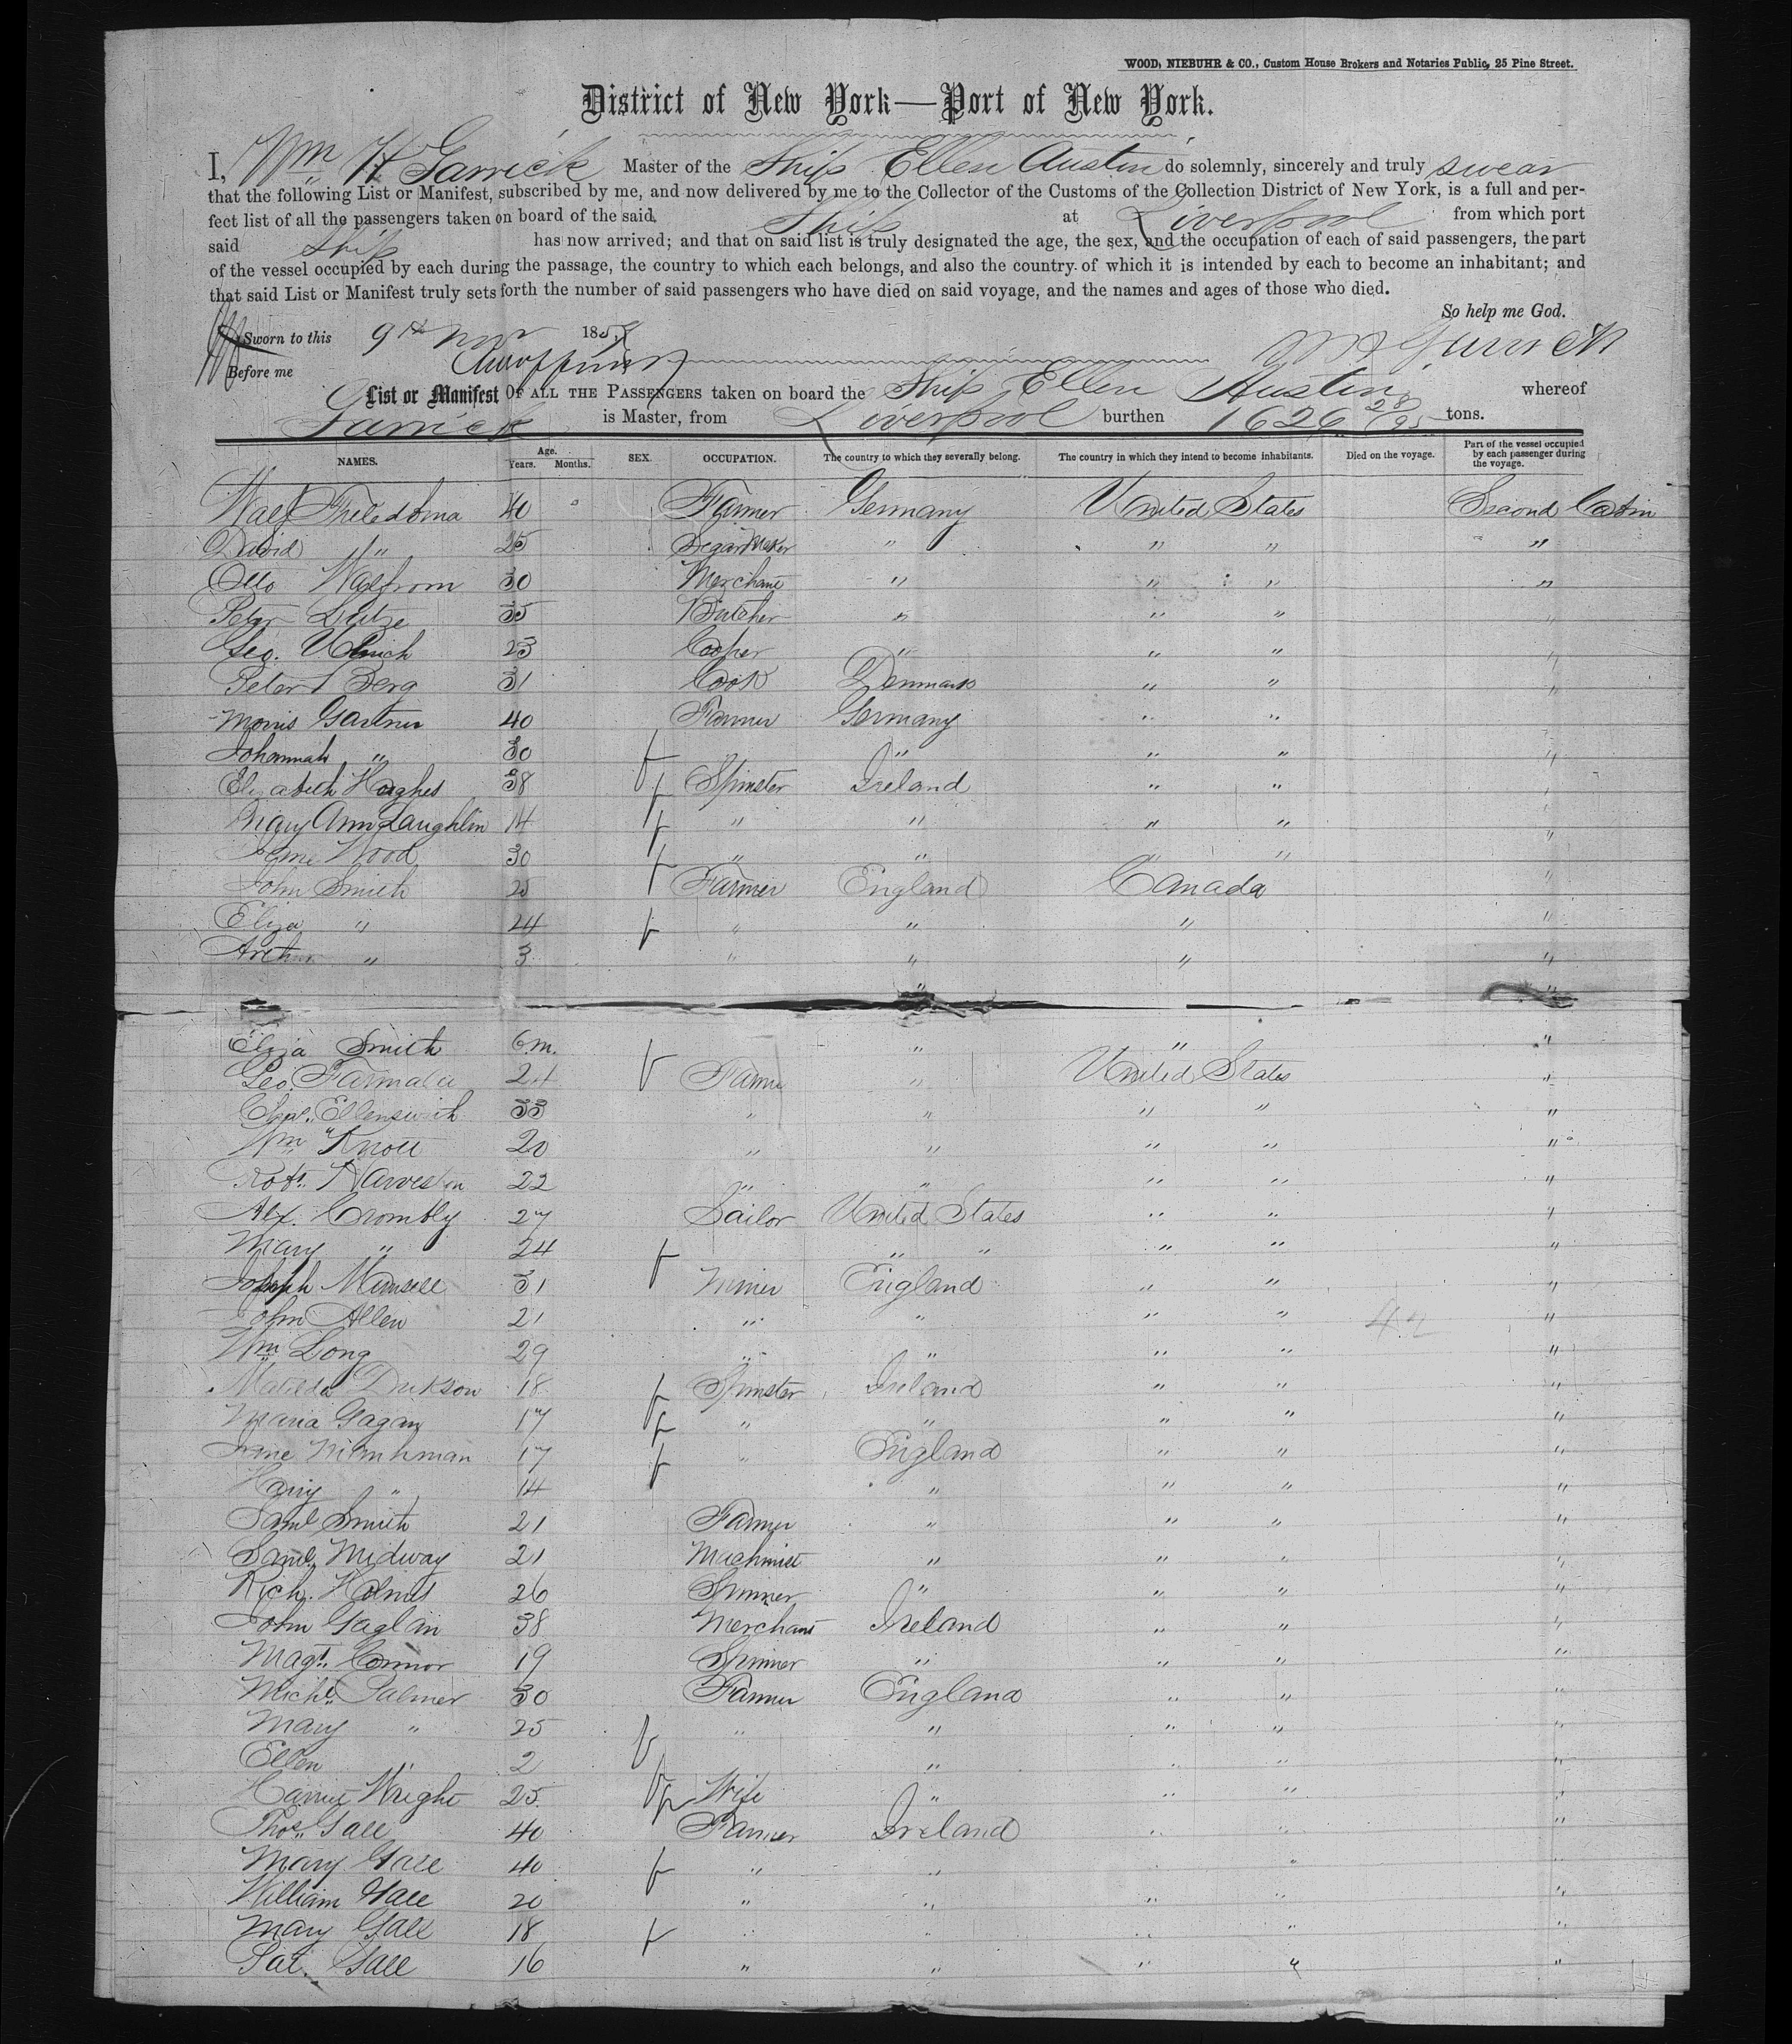 WOOD, NIEBUHR & CO., Custom House Brokers and Notaries Public, 25 Pine Street.
District of New York—Port of New York.
I, Wm H Garrick Master of the Ship Ellen Austin do solemnly, sincerely and truly swear
that the following List or Manifest, subscribed by me, and now delivered by me to the Collector of the Customs of the Collection District of New York, is a full and per-
fect list of all the passengers taken on board of the said, Ship at Liverpool from which port
said Ship has now arrived; and that on said list is truly designated the age, the sex, and the occupation of each of said passengers, the part
of the vessel occupied by each during the passage, the country to which each belongs, and also the country of which it is intended by each to become an inhabitant; and
that said List or Manifest truly sets forth the number of said passengers who have died on said voyage, and the names and ages of those who died.
So help me God.
Sworn to this 9th Nov 185
Before me
List or Manifest OF ALL THE PASSENGERS taken on board the Ship Ellen Austin whereof
Garrick is Master, from Liverpool burthen 1626 28/95 tons.
NAMES. Age. Years. Months. SEX. OCCUPATION. The country to which they severally belong. The country in which they intend to become inhabitants. Died on the voyage. Part of the vessel occupied by each passenger during the voyage.
40 Farmer Germany United States Second Cabin
David " 25 Segar Maker " " " "
Otto 30 Merchant " " " "
Peter 35 Butcher " " " "
Geo. Ulrich 23 Cooper " " " "
Peter Berg 31 Cook Denmark " " "
Morris Gartner 40 Farmer Germany " " "
Johannah " 30 f " " " "
Elizabeth Hughes 38 f Spinster Ireland " " "
Mary Ann Laughlin 14 f " " " " "
Jane Wood 30 f " " " " "
John Smith 25 Farmer England Canada "
Eliza " 24 f " " " "
Arthur " 3 " " " "
" "
Eliza Smith 6 m. f " " "
Geo. 24 Farmer " United States "
33 " " " " "
Wm Knott 20 " " " " "
Robt. 22 " " " " "
Alex. Crombly 27 Sailor United States " " "
Mary " 24 f " " " " "
Joseph 31 Miner England " " "
John Allen 21 " " " " "
Wm Long 29 " " " " "
Matilda 18 f Spinster Ireland " " "
Maria Gagan 17 f " " " " "
Jane 17 f " England " " "
Harry " 14 " " " "
Saml Smith 21 Farmer " " " "
Saml. Midway 21 Machinist " " " "
Rich. Holmes 26 Spinner " " " "
John 38 Merchant Ireland " " "
Magt. Connor 19 Spinner " " " "
Michl. Palmer 30 Farmer England " " "
Mary " 25 f " " " " "
Ellen " 2 f " " " "
Wright 25 f Wife " " " "
Thos. Gall 40 Farmer Ireland " " "
Mary Gall 40 f " " " "
William Gall 20 " " " " "
Mary Gall 18 f " " " " "
Pat. Gall 16 " " " " "